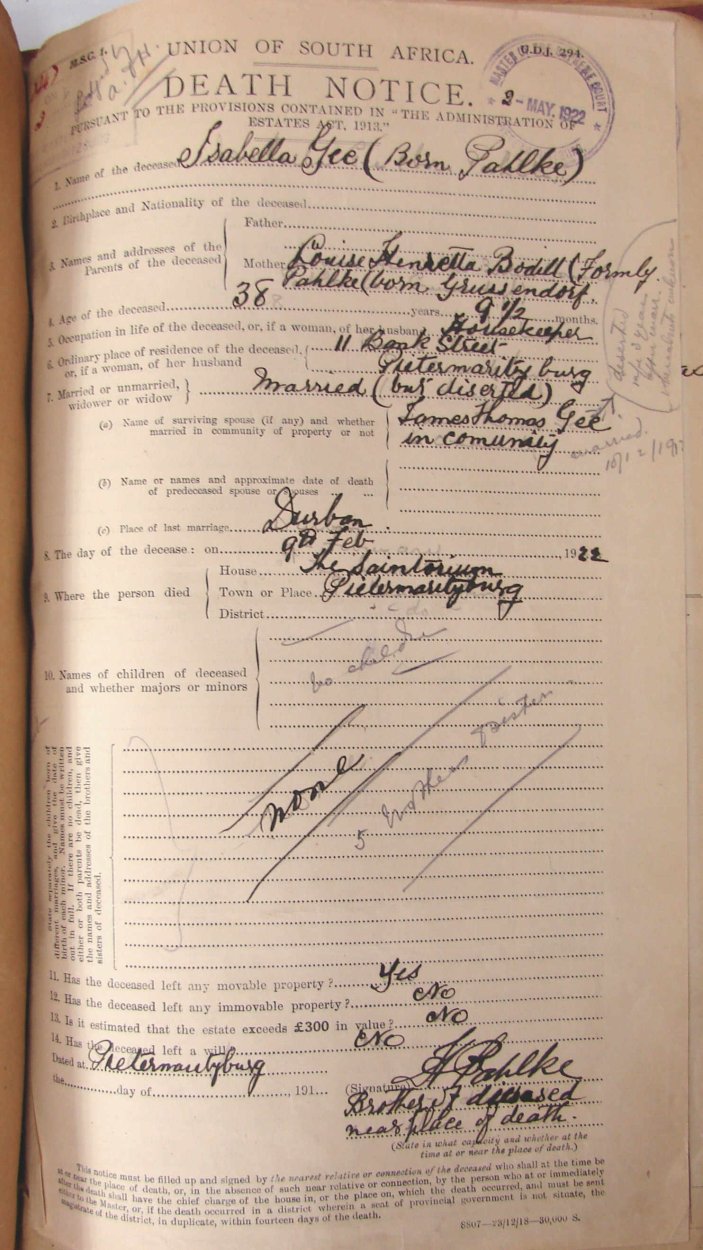 M.S.C. 1.
U.D.J. 294.
UNION OF SOUTH AFRICA.
DEATH NOTICE.
MASTER SUPREME COURT
2 - MAY. 1922
PURSUANT TO THE PROVISIONS CONTAINED IN "THE ADMINISTRATION OF
ESTATES ACT, 1913."
1. Name of the deceased Isabella Gee (Born Pahlke)
2. Birthplace and Nationality of the deceased
3. Names and addresses of the
Parents of the deceased
Father
Mother Louise Henretta Bodill (Formly
Pahlke (born Grussendorf.
4. Age of the deceased 38 years 9 1/2 months.
5. Occupation in life of the deceased, or, if a woman, of her husband Housekeeper
6. Ordinary place of residence of the deceased,
or, if a woman, of her husband
11 Bank Street
Pietermaritzburg
7. Married or unmarried,
widower or widow
Married (but diserted)
(a) Name of surviving spouse (if any) and whether
married in community of property or not
James Thomas Gee
in comunity
deserted
married.
(b) Name or names and approximate date of death
of predeceased spouse or spouses
(c) Place of last marriage Durban.
8. The day of the decease: on 9th Feb 1922
9. Where the person died
House The Saintorium
Town or Place Pietermaritzburg
District do
10. Names of children of deceased
and whether majors or minors
No children
State separately the children born of
different marriages, and give the date of
birth of each minor. Names must be written
out in full. If there are no children, and
either or both parents be dead, then give
the names and addresses of the brothers and
sisters of deceased.
none
5 brothers sister
11. Has the deceased left any movable property? Yes
12. Has the deceased left any immovable property? No
13. Is it estimated that the estate exceeds £300 in value? No
14. Has the deceased left a will? No
Dated at Pietermaritzburg
the day of , 191
(Signature) H Pahlke
Brother of deceased
near place of death.
(State in what capacity and whether at the
time at or near the place of death.)
This notice must be filled up and signed by the nearest relative or connection of the deceased who shall at the time be
at or near the place of death, or, in the absence of such near relative or connection, by the person who at or immediately
after the death shall have the chief charge of the house in, or the place on, which the death occurred, and must be sent
either to the Master, or, if the death occurred in a district wherein a seat of provincial government is not situate, the
magistrate of the district, in duplicate, within fourteen days of the death.
8807—23/12/18—30,000 S.